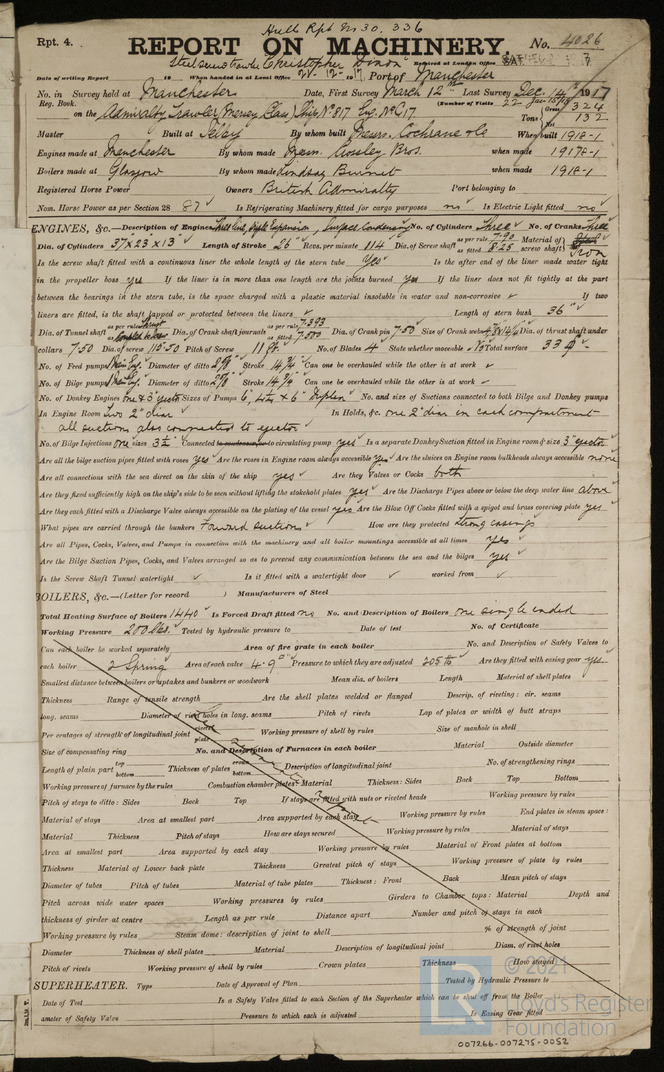 Hull Rpt No 30,336
Rpt. 4.
REPORT ON MACHINERY. No. 4026
Steel screw trawler "Christopher Dixon" Received at London Office
Date of writing Report 19 When handed in at Local Office 28-12-17 Port of Manchester
No. in Survey held at Manchester Date, First Survey March 12th Last Survey Dec. 14th 1917
Reg. Book. (Number of Visits 22
on the Admiralty Trawler (Mersey Class) Ship No 817 Eng. No C17 Tons Gross 324 Net 132
Master Built at Selby By whom built Messrs. Cochrane & Co When built 1918-1
Engines made at Manchester By whom made Messrs. Crossley Bros. when made 1917 8-1
Boilers made at Glasgow By whom made Lindsay Burnet when made 1918-1
Registered Horse Power Owners British Admiralty Port belonging to
Nom. Horse Power as per Section 28 87 Is Refrigerating Machinery fitted for cargo purposes no Is Electric Light fitted no
ENGINES, &c.—Description of Engines Triple Expansion, Surface Condensing No. of Cylinders Three No. of Cranks Three
Dia. of Cylinders 37 x 23 x 13 Length of Stroke 26" Revs. per minute 114 Dia. of Screw shaft as per rule 7.90 as fitted 8.25 Material of screw shaft Iron
Is the screw shaft fitted with a continuous liner the whole length of the stern tube Yes Is the after end of the liner made water tight
in the propeller boss yes If the liner is in more than one length are the joints burned yes If the liner does not fit tightly at the part
between the bearings in the stern tube, is the space charged with a plastic material insoluble in water and non-corrosive If two
liners are fitted, is the shaft lapped or protected between the liners Length of stern bush 36"
Dia. of Tunnel shaft as per rule as fitted Dia. of Crank shaft journals as per rule 7.393 as fitted 7.500 Dia. of Crank pin 7.50 Size of Crank webs Dia. of thrust shaft under
collars 7.50 Dia. of screw Pitch of Screw 11 ft. No. of Blades 4 State whether moveable No Total surface 33
No. of Feed pumps Diameter of ditto Stroke 14 3/4 Can one be overhauled while the other is at work
No. of Bilge pumps Diameter of ditto Stroke 14 3/4 Can one be overhauled while the other is at work
No. of Donkey Engines Sizes of Pumps 6, No. and size of Suctions connected to both Bilge and Donkey pumps
In Engine Room Two 2" dia In Holds, &c. one 2" dia in each compartment
all suctions also connected to ejector
No. of Bilge Injections one sizes Connected to condenser, or to circulating pump yes Is a separate Donkey Suction fitted in Engine room & size 3" ejector
Are all the bilge suction pipes fitted with roses yes Are the roses in Engine room always accessible yes Are the sluices on Engine room bulkheads always accessible none
Are all connections with the sea direct on the skin of the ship yes Are they Valves or Cocks both
Are they fixed sufficiently high on the ship's side to be seen without lifting the stokehold plates yes Are the Discharge Pipes above or below the deep water line above
Are they each fitted with a Discharge Valve always accessible on the plating of the vessel yes Are the Blow Off Cocks fitted with a spigot and brass covering plate yes
What pipes are carried through the bunkers Forward suctions How are they protected Strong casings
Are all Pipes, Cocks, Valves, and Pumps in connection with the machinery and all boiler mountings accessible at all times yes
Are the Bilge Suction Pipes, Cocks, and Valves arranged so as to prevent any communication between the sea and the bilges yes
Is the Screw Shaft Tunnel watertight Is it fitted with a watertight door worked from
BOILERS, &c.—(Letter for record ) Manufacturers of Steel
Total Heating Surface of Boilers 1440 Is Forced Draft fitted no No. and Description of Boilers one single ended
Working Pressure 200 lbs. Tested by hydraulic pressure to Date of test No. of Certificate
Can each boiler be worked separately Area of fire grate in each boiler No. and Description of Safety Valves to
each boiler 2 Spring Area of each valve 4.9" Pressure to which they are adjusted 205 lb Are they fitted with easing gear yes
Smallest distance between boilers or uptakes and bunkers or woodwork Mean dia. of boilers Length Material of shell plates
Thickness Range of tensile strength Are the shell plates welded or flanged Descrip. of riveting: cir. seams
long. seams Diameter of rivet holes in long. seams Pitch of rivets Lap of plates or width of butt straps
Per centages of strength of longitudinal joint rivets plate Working pressure of shell by rules Size of manhole in shell
Size of compensating ring No. and Description of Furnaces in each boiler Material Outside diameter
Length of plain part top bottom Thickness of plates crown bottom Description of longitudinal joint No. of strengthening rings
Working pressure of furnace by the rules Combustion chamber plates: Material Thickness: Sides Back Top Bottom
Pitch of stays to ditto: Sides Back Top If stays are fitted with nuts or riveted heads Working pressure by rules
Material of stays Area at smallest part Area supported by each stay Working pressure by rules End plates in steam space:
Material Thickness Pitch of stays How are stays secured Working pressure by rules Material of stays
Area at smallest part Area supported by each stay Working pressure by rules Material of Front plates at bottom
Thickness Material of Lower back plate Thickness Greatest pitch of stays Working pressure of plate by rules
Diameter of tubes Pitch of tubes Material of tube plates Thickness: Front Back Mean pitch of stays
Pitch across wide water spaces Working pressures by rules Girders to Chamber tops: Material Depth and
thickness of girder at centre Length as per rule Distance apart Number and pitch of stays in each
Working pressure by rules Steam dome: description of joint to shell % of strength of joint
Diameter Thickness of shell plates Material Description of longitudinal joint Diam. of rivet holes
Pitch of rivets Working pressure of shell by rules Crown plates Thickness How stayed
SUPERHEATER. Type Date of Approval of Plan Tested by Hydraulic Pressure to
Date of Test Is a Safety Valve fitted to each Section of the Superheater which can be shut off from the Boiler
ameter of Safety Valve Pressure to which each is adjusted Is Easing Gear fitted
LR © 2021
Lloyd's Register
Foundation
007266-007275-0052